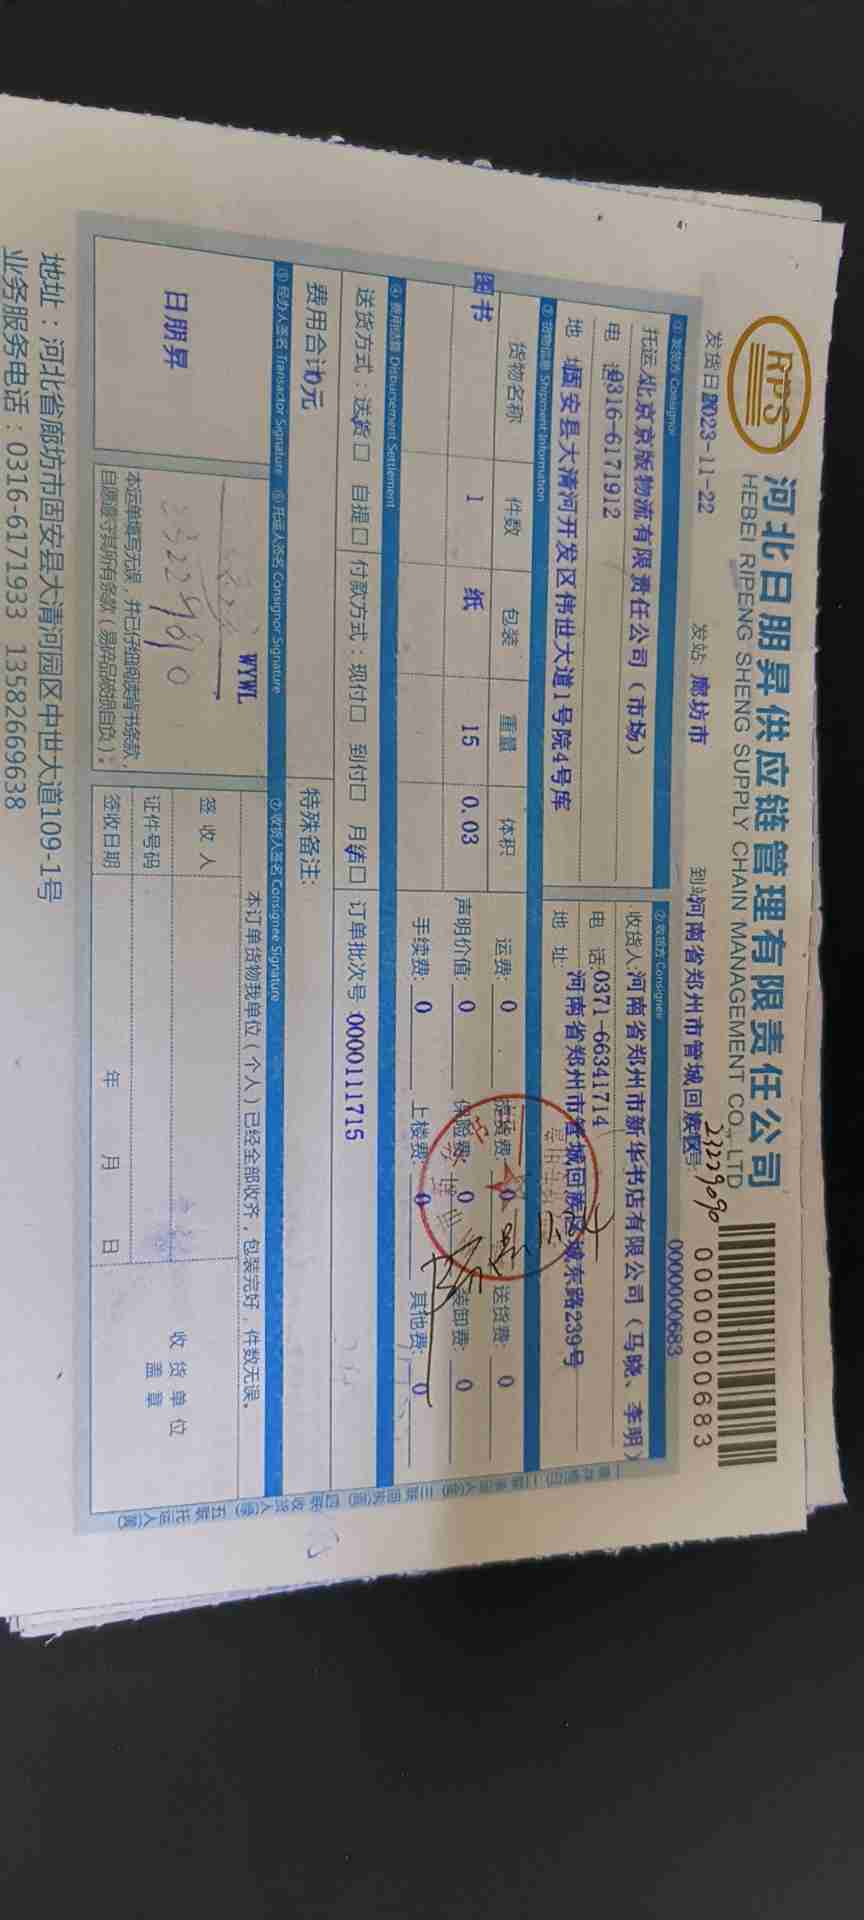 RPS
河北日朋昇供应链管理有限责任公司
HEBEI RIPENG SHENG SUPPLY CHAIN MANAGEMENT CO., LTD
0000000683
发货日期2023-11-22 发站: 廊坊市 到站:河南省郑州市管城回族区
23229090
0000000683
① 发货方 Consignor
② 收货方 Consignee
托运人:北京京版物流有限责任公司(市场)
收货人:河南省郑州市新华书店有限公司(马晓、李明)
电 话:0316-6171912
电 话:0371-66341714
地 址:固安县大清河开发区伟世大道1号院4号库
地 址: 河南省郑州市管城回族区城东路239号
③ 货物信息 Shipment Information
货物名称 件数 包装 重量 体积
图书 1 纸 15 0.03
运费: 0 提货费: 0 送货费: 0
声明价值: 0 保险费: 0 装卸费: 0
手续费: 0 上楼费: 0 其他费: 0
④ 费用结算 Disbursement Settlement
送货方式:送货☐ 自提☐ 付款方式:现付☐ 到付☐ 月结☐ 订单批次号:0000111715
费用合计:0元
特殊备注:
⑤ 经办人签名 Transactor Signature ⑥ 托运人签名 Consignor Signature ⑦ 收货人签名 Consignee Signature
日朋昇
WYWL
本运单填写无误,并已仔细阅读背书条款,
自愿遵守其所有条款(易碎品破损自负)。
本订单货物我单位(个人)已经全部收齐,包装完好,件数无误。
签 收 人
证件号码
签收日期 年 月 日
收 货 单 位
盖 章
地址:河北省廊坊市固安县大清河园区中世大道109-1号
业务服务电话:0316-6171933 13582669638